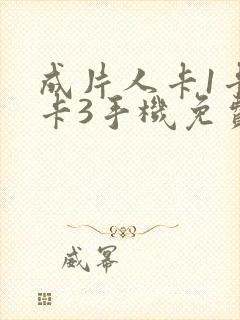 成片人卡1卡
卡3手機免費
威冪